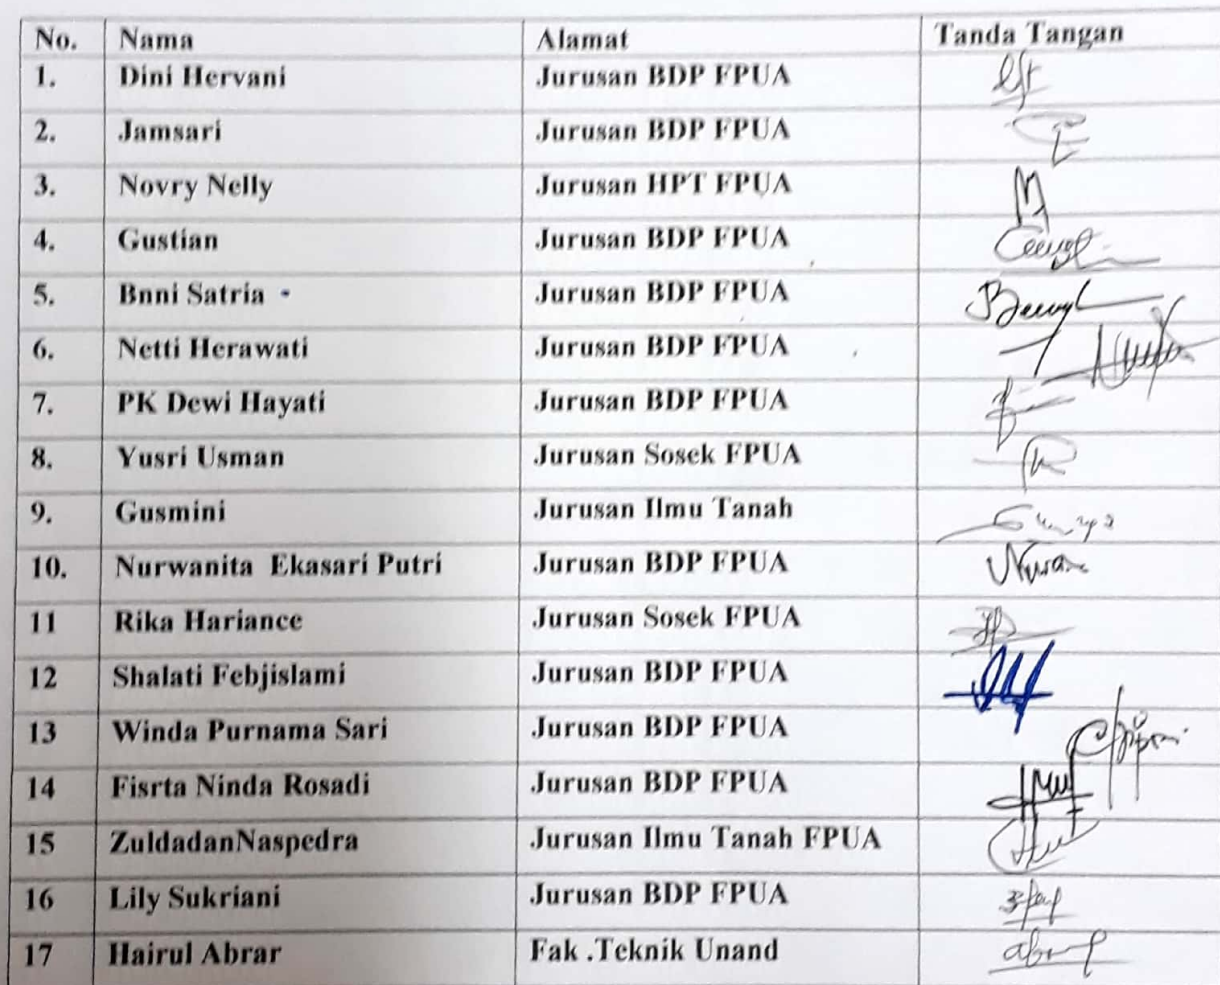 No. Nama Alamat Tanda Tangan
1. Dini Hervani Jurusan BDP FPUA
2. Jamsari Jurusan BDP FPUA
3. Novry Nelly Jurusan HPT FPUA
4. Gustian Jurusan BDP FPUA
5. Bnni Satria Jurusan BDP FPUA
6. Netti Herawati Jurusan BDP FPUA
7. PK Dewi Hayati Jurusan BDP FPUA
8. Yusri Usman Jurusan Sosek FPUA
9. Gusmini Jurusan Ilmu Tanah
10. Nurwanita Ekasari Putri Jurusan BDP FPUA
11 Rika Hariance Jurusan Sosek FPUA
12 Shalati Febjislami Jurusan BDP FPUA
13 Winda Purnama Sari Jurusan BDP FPUA
14 Fisrta Ninda Rosadi Jurusan BDP FPUA
15 ZuldadanNaspedra Jurusan Ilmu Tanah FPUA
16 Lily Sukriani Jurusan BDP FPUA
17 Hairul Abrar Fak .Teknik Unand